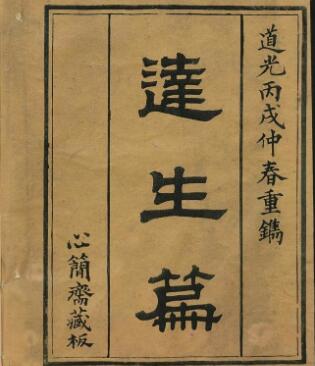 道光丙戌仲春重鐫
達生篇
心簡齋藏板